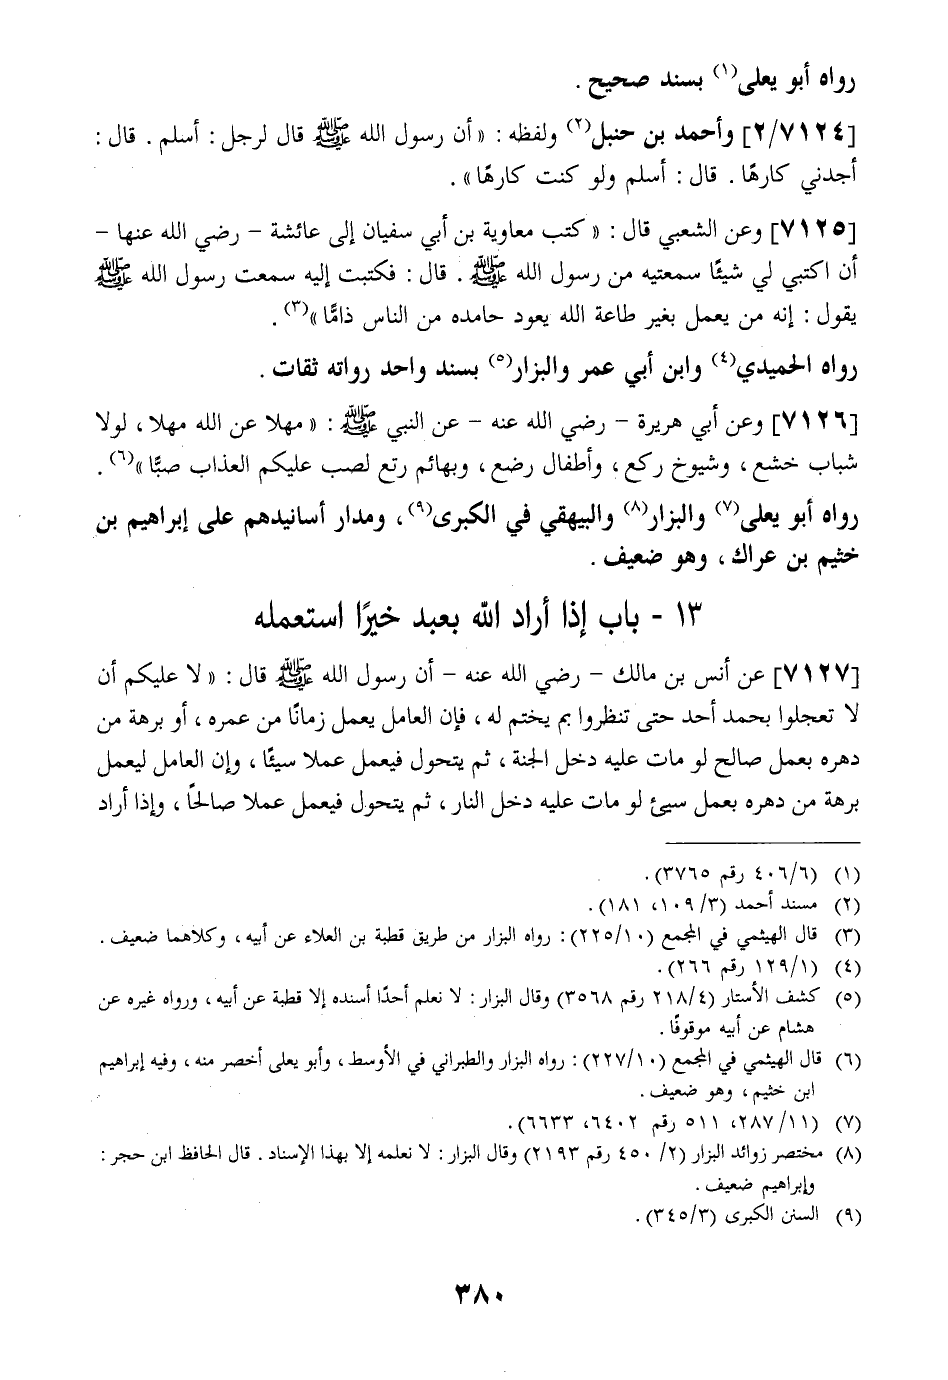 رواه أبو يعلى(١) بسند صحيح .
[٢/٧١٢٤] وأحمد بن حنبل(٢) ولفظه : « أن رسول الله ﷺ قال لرجل : أسلم . قال :
أجدني كارهًا . قال : أسلم ولو كنت كارهًا » .
[٧١٢٥] وعن الشعبي قال : « كتب معاوية بن أبي سفيان إلى عائشة – رضي الله عنها –
أن اكتبي لي شيئًا سمعتيه من رسول الله ﷺ . قال : فكتبت إليه سمعت رسول الله ﷺ
يقول : إنه من يعمل بغير طاعة الله يعود حامده من الناس ذامًّا »(٣) .
رواه الحميدي(٤) وابن أبي عمر والبزار(٥) بسند واحد رواته ثقات .
[٧١٢٦] وعن أبي هريرة – رضي الله عنه – عن النبي ﷺ : « مهلا عن الله مهلا ، لولا
شباب خشع ، وشيوخ ركع ، وأطفال رضع ، وبهائم رتع لصب عليكم العذاب صبًّا »(٦) .
رواه أبو يعلى(٧) والبزار(٨) والبيهقي في الكبرى(٩) ، ومدار أسانيدهم على إبراهيم بن
خثيم بن عراك ، وهو ضعيف .
١٣ - باب إذا أراد الله بعبد خيرًا استعمله
[٧١٢٧] عن أنس بن مالك – رضي الله عنه – أن رسول الله ﷺ قال : « لا عليكم أن
لا تعجلوا بحمد أحد حتى تنظروا بم يختم له ، فإن العامل يعمل زمانًا من عمره ، أو برهة من
دهره بعمل صالح لو مات عليه دخل الجنة ، ثم يتحول فيعمل عملا سيئًا ، وإن العامل ليعمل
برهة من دهره بعمل سيئ لو مات عليه دخل النار ، ثم يتحول فيعمل عملا صالحًا ، وإذا أراد
(١) (٤٠٦/٦ رقم ٣٧٦٥).
(٢) مسند أحمد (١٠٩/٣، ١٨١).
(٣) قال الهيثمي في المجمع (٢٢٥/١٠) : رواه البزار من طريق قطبة بن العلاء عن أبيه ، وكلاهما ضعيف .
(٤) (١٢٩/١ رقم ٢٦٦).
(٥) كشف الأستار (٢١٨/٤ رقم ٣٥٦٨) وقال البزار : لا نعلم أحدًا أسنده إلا قطبة عن أبيه ، ورواه غيره عن
هشام عن أبيه موقوفًا .
(٦) قال الهيثمي في المجمع (٢٢٧/١٠) : رواه البزار والطبراني في الأوسط ، وأبو يعلى أخصر منه ، وفيه إبراهيم
ابن خثيم ، وهو ضعيف .
(٧) (٢٨٧/١١، ٥١١ رقم ٦٤٠٢، ٦٦٣٣).
(٨) مختصر زوائد البزار (٢/ ٤٥٠ رقم ٢١٩٣) وقال البزار : لا نعلمه إلا بهذا الإسناد . قال الحافظ ابن حجر :
وإبراهيم ضعيف .
(٩) السنن الكبرى (٣٤٥/٣).
٣٨٠